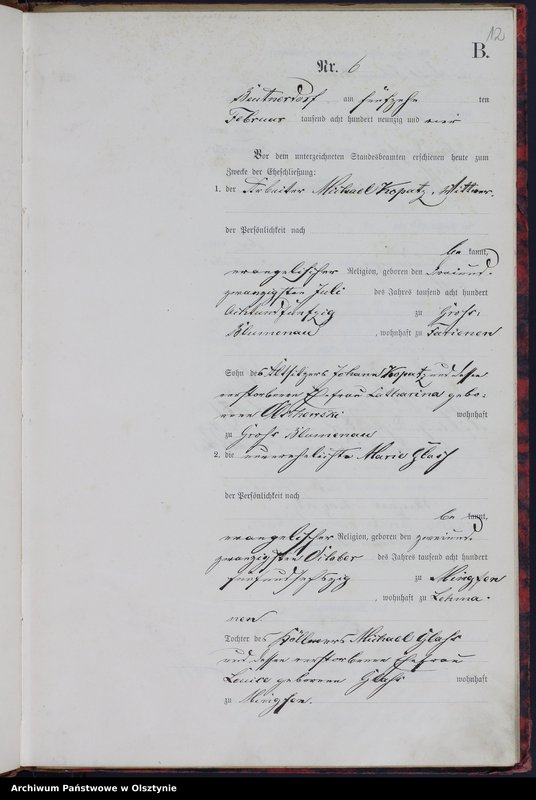 12
B.
Nr. 6
Beutnerdorf am fünfzehn ten
Februar tausend acht hundert neunzig und vier
Vor dem unterzeichneten Standesbeamten erschienen heute zum
Zwecke der Eheschließung:
1. der Arbeiter Michael Kopatz, Wittwer.
der Persönlichkeit nach
be kannt,
evangelischer Religion, geboren den dreiund-
zwanzigsten Juli des Jahres tausend acht hundert
achtundfünfzig zu Groß-
Blumenau, wohnhaft zu
Sohn des Altsitzers Johann Kopatz und dessen
verstorbenen Ehefrau Catharina gebo-
renen wohnhaft
zu Groß Blumenau
2. die unverehelichte Marie Glaß
der Persönlichkeit nach
be kannt,
evangelischer Religion, geboren den zweiund-
zwanzigsten Oktober des Jahres tausend acht hundert
fünfundsechszig zu Mingfen
, wohnhaft zu Lehma-
nen
Tochter des Michael Glaß
und dessen verstorbenen Ehefrau
Louise geborenen Glaß wohnhaft
zu Mingfen.
Archiwum Państwowe w Olsztynie